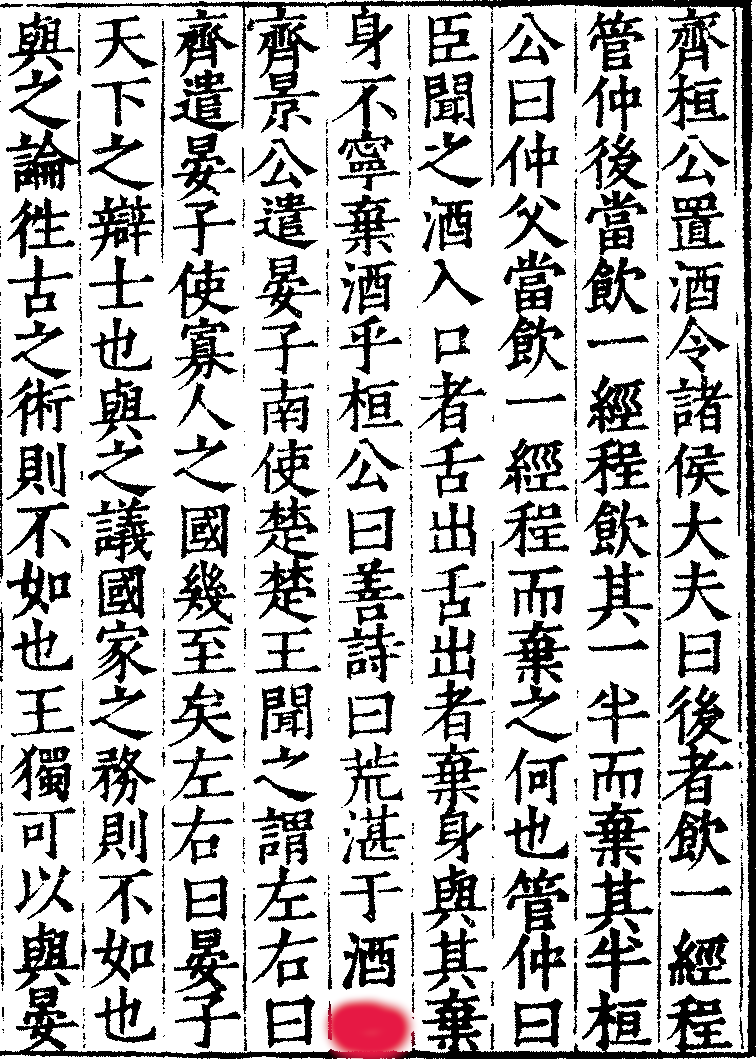 齊桓公置酒令諸侯大夫曰後者飲一經程
管仲後當飲一經程飲其一半而棄其半桓
公曰仲父當飲一經程而棄之何也管仲曰
臣聞之酒入口者舌出舌出者棄身與其棄
身不寧棄酒乎桓公曰善詩曰荒湛于酒
齊景公遣晏子南使楚楚王聞之謂左右曰
齊遣晏子使寡人之國幾至矣左右曰晏子
天下之辯士也與之議國家之務則不如也
與之論徃古之術則不如也王獨可以與晏